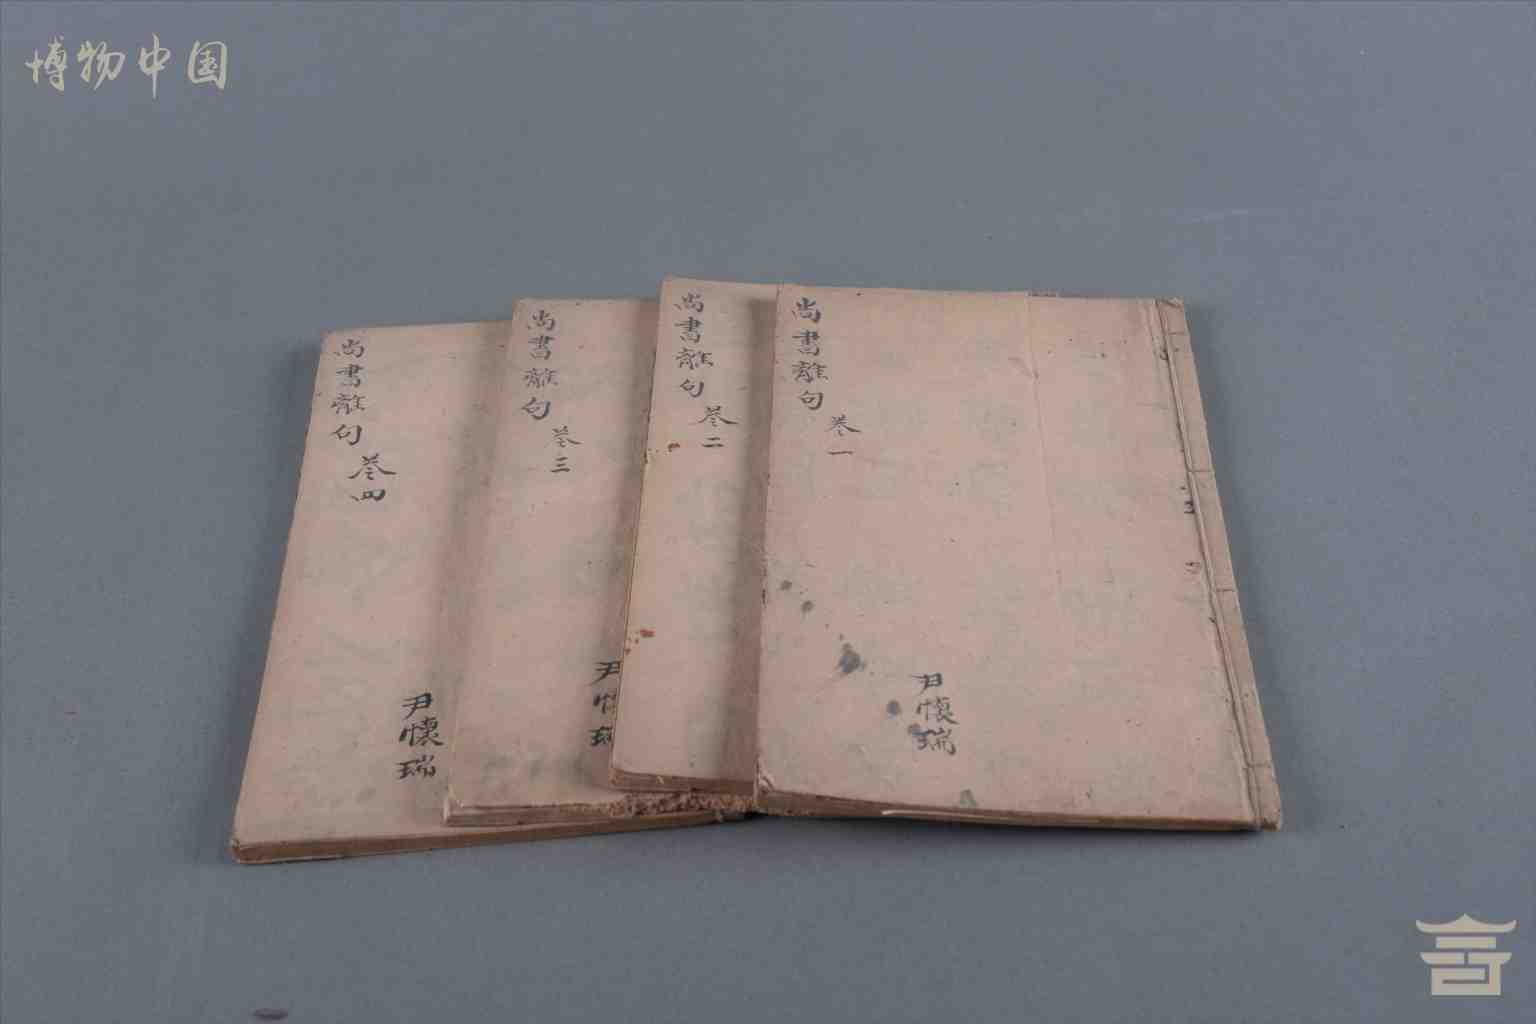 博物中国
尚書離句
卷一
尹懷瑞
尚書離句
卷二
尚書離句
卷三
尹懷瑞
尚書離句
卷四
尹懷瑞